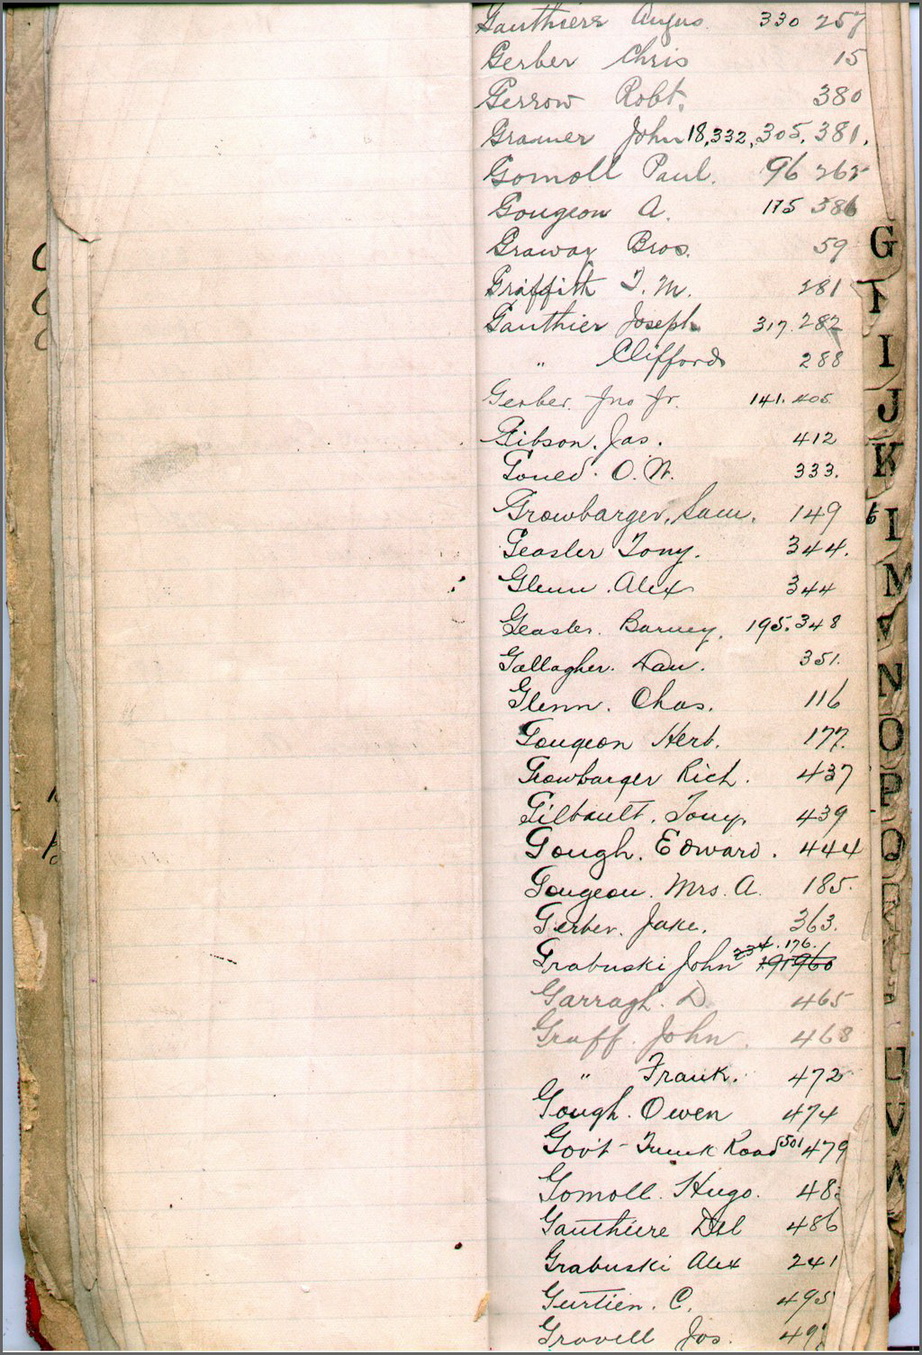 Gauthiere Angus. 330 257
Gerber Chris 15
Gerrow Robt. 380
Gramer John 18,332,305,381.
Gomoll Paul. 96 262
Gougeon A. 175 386
Graway Bros. 59
Griffith T. M. 281
Gauthier Joseph 317.282
" Clifford 288
Gerber. Jno Jr. 141. 405
Gibson. Jas. 412
O. W. 333.
Growbarger, Sam. 149
Geasler Tony. 344.
Glenn. Alex 344
Geasler. Barney. 195.348
Gallagher. Dan. 351.
Glenn. Chas. 116
Gougeon Herb. 177.
Growbarger Rich. 437
Gilbault. Tony. 439
Gough. Edward. 444
Gougeon. Mrs. A. 185.
Gerber. Jake. 363.
234. 176.
Grabuski John
Garragh. D 465
Graff. John. 468
" Frank. 472
Gough. Owen 474
Gov't - Trunk Road 501 479
Gomoll. Hugo. 48
Gauthiere Del 486
Grabuski Alex 241
Gurtien. C. 495
Gravell Jos. 49
G
I
J
K
M
N
O
P
Q
R
U
V